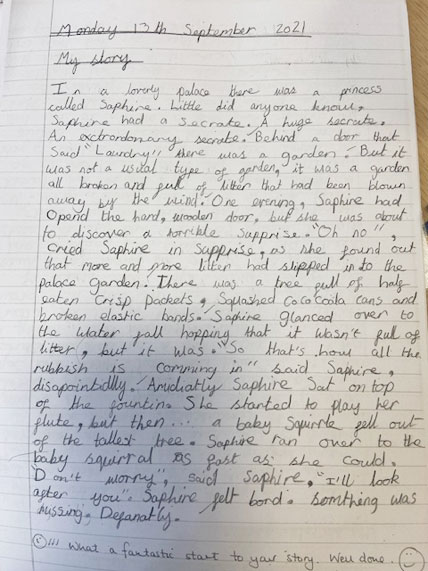 Monday 13th September 2021
My story
In a lovely palace there was a princess
called Saphire. Little did anyone know,
Saphire had a secrate. A huge secrate.
An exctrordonary secrate. Behind a door that
Said "Laurdry" there was a garden. But it
was not a usual type of garden, it was a garden
all broken and full of litter that had been blown
away by the wind. One evening, Saphire had
Opend the hard, wooden door, but she was about
to discover a horrible supprise. "Oh no",
cried Saphire in supprise, as she found out
that more and more litter had slipped in to the
palace garden. There was a tree full of half
eaten Crisp Packets, Squashed CocoCoola cans and
broken elastic bands. Saphire glanced over to
the water fall hopping that it wasn't full of
litter, but it was. "So that's how all the
rubbish is comming in" said Saphire,
disapointidlly. Amudiatly Saphire Sat on top
of the fountin. She started to play her
flute, but then... a baby Squirrle fell out
of the tallest tree. Saphire ran over to the
baby squirral as fast as she could.
Don't worry", said Saphire, "I'll look
after you". Saphire felt bord. Somthing was
mussing. Defanatly.
!!! What a fantastic start to your story. Well done.